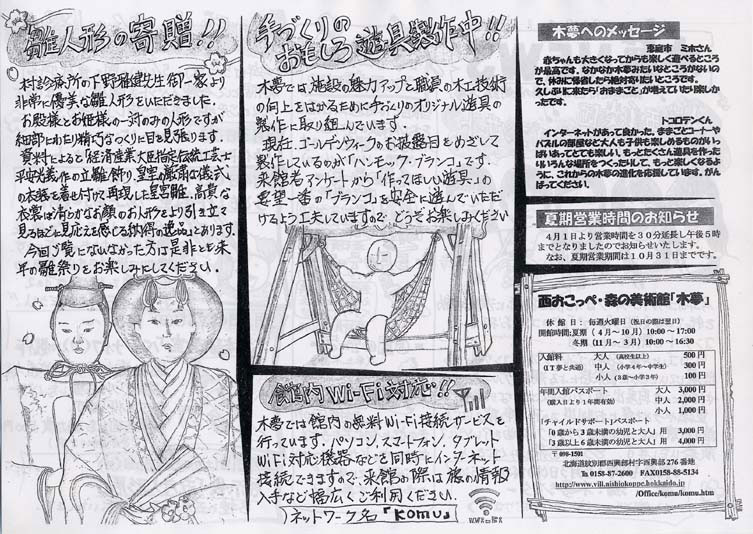 雛人形の寄贈!!
村診療所の下野雅健先生御一家より
非常に優美な雛人形をいただきました。
お殿様とお姫様の一対のみの人形ですが
細部にわたり精巧なつくりに目を見張ります。
資料によると「経済産業大臣指定伝統工芸士
の立雛飾り。皇室の厳粛な儀式
の衣裳を着せ付けて再現した皇宮雛。高貴な
衣裳は清らかなお顔のお人形をより引き立て
見るほどに見応えを感じる納得の逸品」とあります。
今回ご覧になれなかった方は是非とも来
年の雛祭りをお楽しみにしてください。
手づくりの
おもしろ遊具製作中!!
木夢では施設の魅力アップと職員の木工技術
の向上をはかるために手づくりのオリジナル遊具の
製作に取り組んでいます。
現在、ゴールデンウィークのお披露目をめざして
製作しているのが「ハンモック・ブランコ」です。
来館者アンケートから「作ってほしい遊具」の
要望一番の「ブランコ」を安全に遊んでいただ
けるよう工夫していますので、どうぞお楽しみください
館内Wi-Fi対応!!
木夢では館内の無料Wi-Fi接続サービスを
行っています。パソコン、スマートフォン、タブレット
WiFi対応機器などを同時にインターネット
接続できますので、来館の際は旅の情報
入手など幅広くご利用ください。
ネットワーク名「komu」
木夢へのメッセージ
恵庭市 ミホさん
赤ちゃんも大きくなってからも楽しく遊べるところ
が最高です。なかなか木夢みたいなところがないの
で、休みに帰省したら絶対寄りたいところです。
久しぶりに来たら「おままごと」が増えていたり楽しか
ったです。
トコロテンくん
インターネットがあって良かった。ままごとコーナーや
パズルの部屋など大人も子供も楽しめるものがいっ
ぱいあってとても楽しい。もっとたくさん遊具を作った
りいろんな場所をつくったりして、もっと楽しくなるよう
に、これからの木夢の進化を応援しています。がん
ばってください。
夏期営業時間のお知らせ
4月1日より営業時間を30分延長し午後5時
までとなりましたのでお知らせいたします。
なお、夏期営業期間は10月31日までです。
西おこっぺ・森の美術館「木夢」
休館日:毎週火曜日(祝日の際は翌日)
開館時間:夏期(4月〜10月)10:00〜17:00
冬期(11月〜3月)10:00〜16:30
入館料 大人(高校生以上) 500円
(IT夢と共通) 中人(小学4年〜中学生) 300円
小人(3歳〜小学3年) 100円
年間入館パスポート 大人 3,000円
(購入日より1年間有効) 中人 2,000円
小人 1,000円
「チャイルドサポート」パスポート
「0歳から3歳未満の幼児と大人」用 3,000円
「3歳以上6歳未満の幼児と大人」用 4,000円
〒098-1501
北海道紋別郡西興部村字西興部276番地
℡0158-87-2600 FAX0158-88-5134
http://www.vill.nishiokoppe.hokkaido.jp
/Office/komu/komu.htm